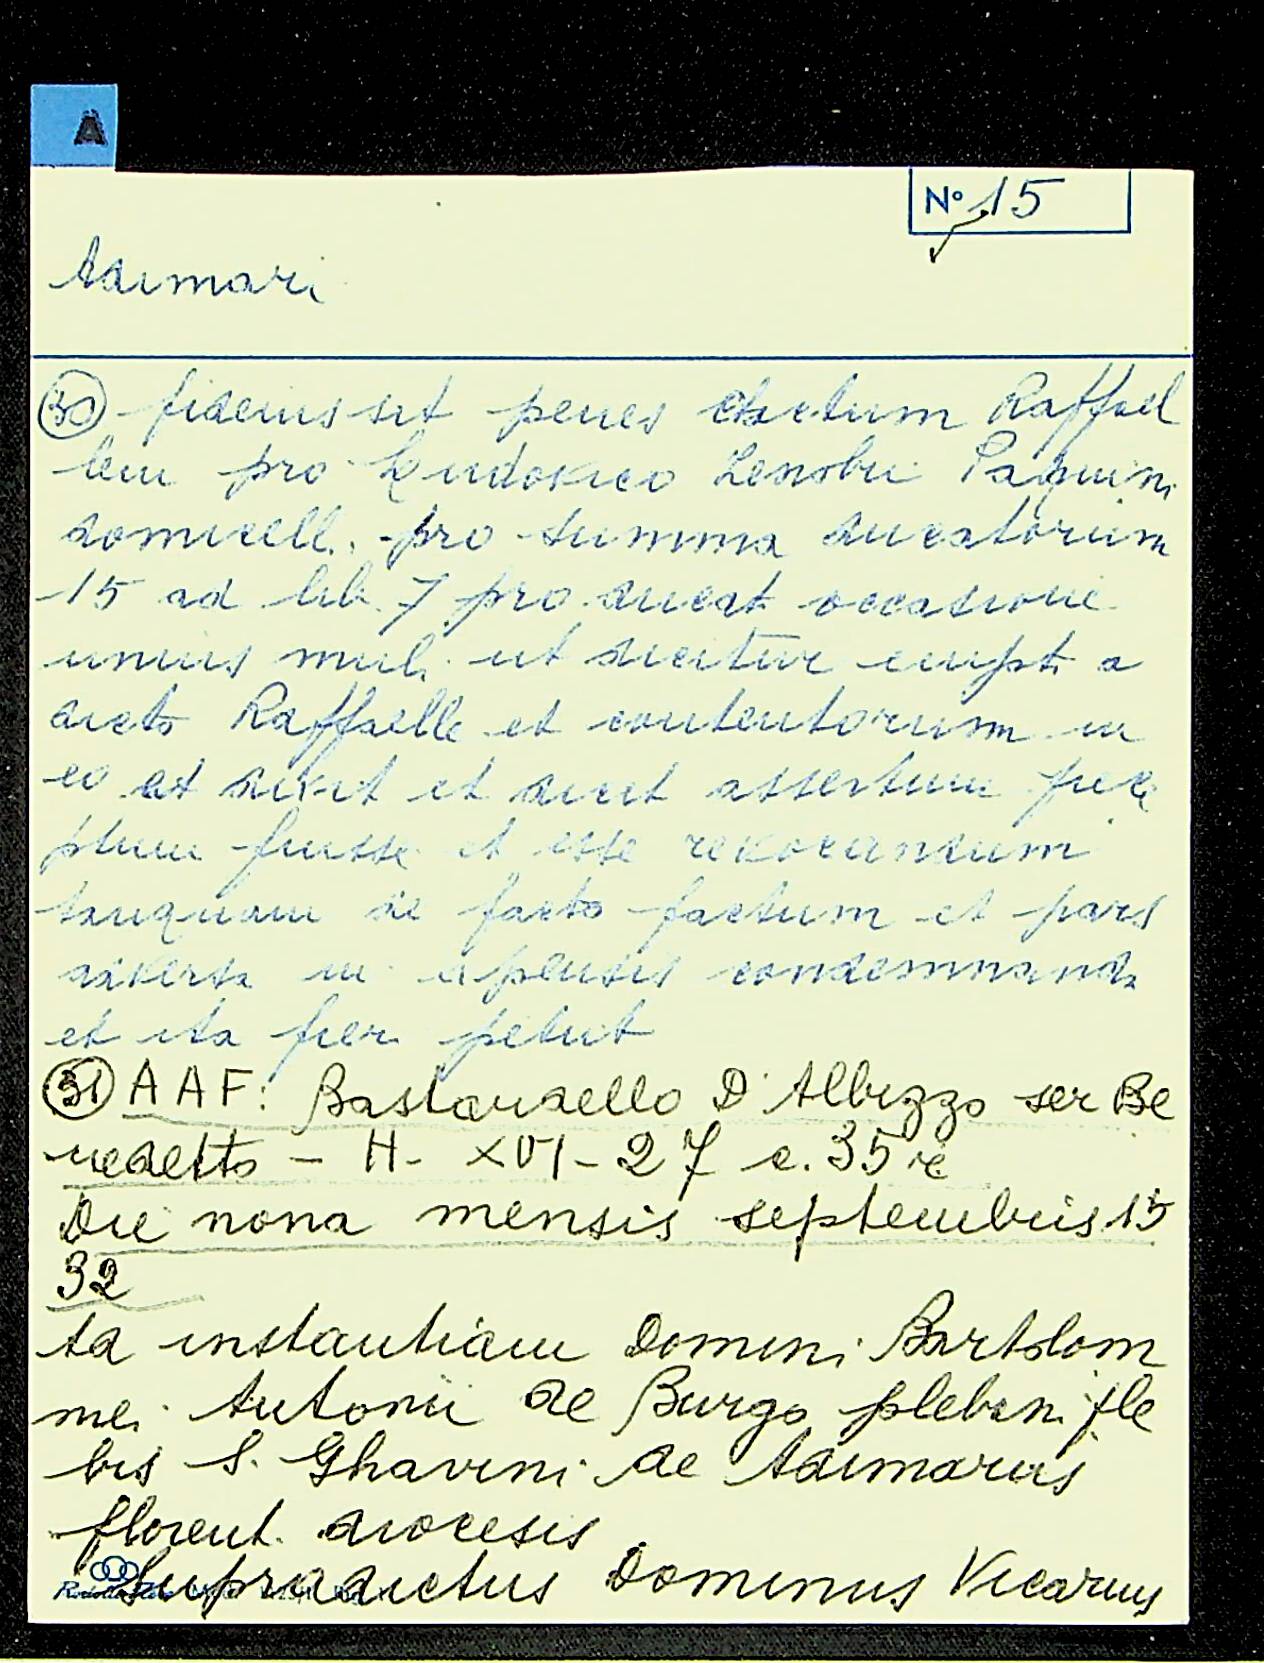 A
Nº 15
Adimari
30 fideiussit penes dictum Raffael
lem pro Ludovico Zenobii Pasquini
domicell. pro summa ducatorum
15 ad lib. 7 pro ducat occasione
unius muli ut dicitur empti a
dicto Raffaelle et contentorum in
eo et dixit et dicit assertum prece
ptum fuisse et esse revocandum
tanquam de facto factum et pars
adversa in expensis condemnanda
et ita fieri petiit
31 A A F: Bastardello D'Albizzo ser Be
nedetto - H - XVI - 27 c. 35 r.
Die nona mensis septembris 15
32
Ad instantiam Domini Bartolom
mei Antonii de Burgo plebani ple
bis S. Ghavini de Adimaris
florent. diocesis
Supradictus Dominus Vicarius